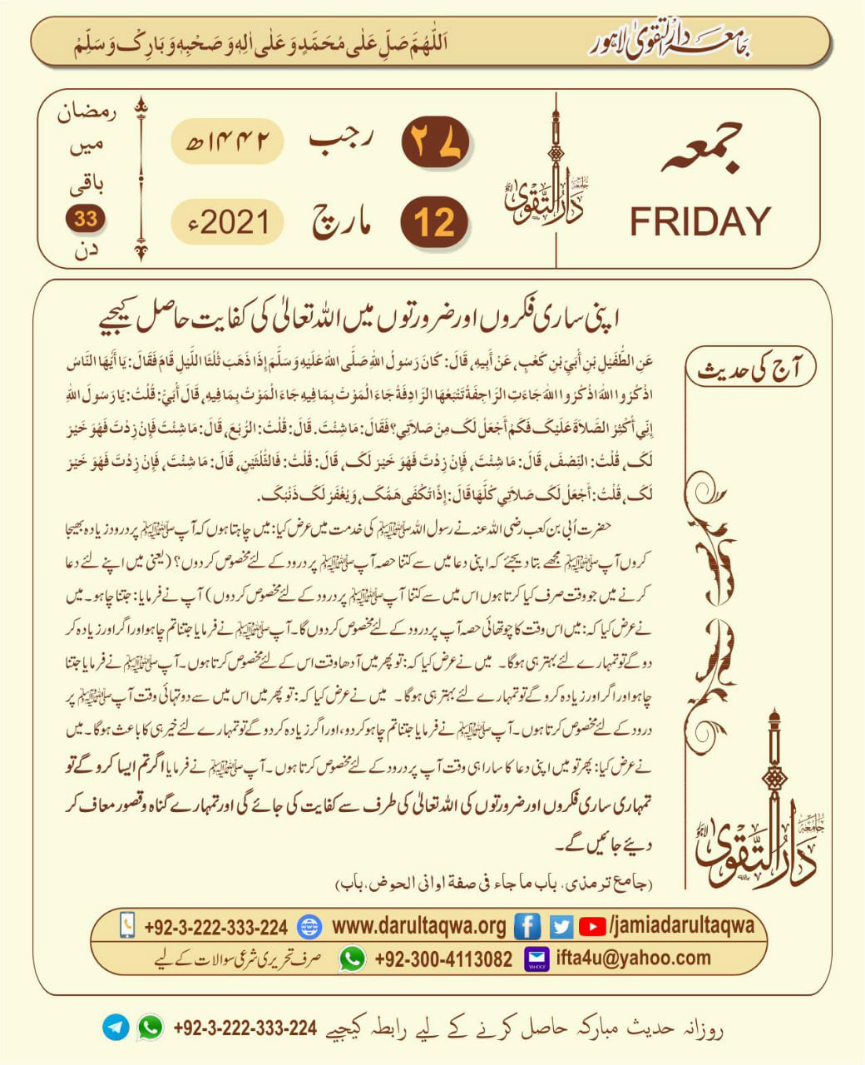 جامعہ دارالتقویٰ لاہور
اَللّٰهُمَّ صَلِّ عَلٰى مُحَمَّدٍ وَعَلٰى اٰلِهٖ وَصَحْبِهٖ وَبَارِكْ وَسَلِّمْ
جمعہ
FRIDAY
جامعہ دارالتقویٰ
۲۷ رجب ۱۴۴۲ھ
12 مارچ 2021ء
رمضان
میں
باقی
33
دن
اپنی ساری فکروں اور ضرورتوں میں اللہ تعالیٰ کی کفایت حاصل کیجیے
آج کی حدیث
عَنِ الطُّفَيْلِ بْنِ أُبَيِّ بْنِ كَعْبٍ، عَنْ أَبِيهِ، قَالَ: كَانَ رَسُولُ اللهِ صَلَّى اللهُ عَلَيْهِ وَسَلَّمَ إِذَا ذَهَبَ ثُلُثَا اللَّيْلِ قَامَ فَقَالَ: يَا أَيُّهَا النَّاسُ
اذْكُرُوا اللهَ اذْكُرُوا اللهَ جَاءَتِ الرَّاجِفَةُ تَتْبَعُهَا الرَّادِفَةُ جَاءَ الْمَوْتُ بِمَا فِيهِ جَاءَ الْمَوْتُ بِمَا فِيهِ، قَالَ أُبَيٌّ: قُلْتُ: يَا رَسُولَ اللهِ
إِنِّي أُكْثِرُ الصَّلَاةَ عَلَيْكَ فَكَمْ أَجْعَلُ لَكَ مِنْ صَلَاتِي؟ فَقَالَ: مَا شِئْتَ. قَالَ: قُلْتُ: الرُّبُعَ، قَالَ: مَا شِئْتَ فَإِنْ زِدْتَ فَهُوَ خَيْرٌ
لَكَ، قُلْتُ: النِّصْفَ، قَالَ: مَا شِئْتَ، فَإِنْ زِدْتَ فَهُوَ خَيْرٌ لَكَ، قَالَ: قُلْتُ: فَالثُّلُثَيْنِ، قَالَ: مَا شِئْتَ، فَإِنْ زِدْتَ فَهُوَ خَيْرٌ
لَكَ، قُلْتُ: أَجْعَلُ لَكَ صَلَاتِي كُلَّهَا قَالَ: إِذًا تُكْفَى هَمَّكَ، وَيُغْفَرُ لَكَ ذَنْبُكَ.
حضرت اُبی بن کعب رضی اللہ عنہ نے رسول اللہ ﷺ کی خدمت میں عرض کیا: میں چاہتا ہوں کہ آپ ﷺ پر درود زیادہ بھیجا
کروں آپ ﷺ مجھے بتا دیجئے کہ اپنی دعا میں سے کتنا حصہ آپ ﷺ پر درود کے لئے مخصوص کردوں؟ (یعنی میں اپنے لئے دعا
کرنے میں جو وقت صرف کیا کرتا ہوں اس میں سے کتنا آپ ﷺ پر درود کے لئے مخصوص کردوں) آپ نے فرمایا: جتنا چاہو۔ میں
نے عرض کیا کہ: میں اس وقت کا چوتھائی حصہ آپ پر درود کے لئے مخصوص کردوں گا۔ آپ ﷺ نے فرمایا جتنا تم چاہو اور اگر اور زیادہ کر
دو گے تو تمہارے لئے بہتر ہی ہوگا۔ میں نے عرض کیا کہ: تو پھر میں آدھا وقت اس کے لئے مخصوص کرتا ہوں۔ آپ ﷺ نے فرمایا جتنا
چاہو اور اگر اور زیادہ کرو گے تو تمہارے لئے بہتر ہی ہوگا۔ میں نے عرض کیا کہ: تو پھر میں اس میں سے دو تہائی وقت آپ ﷺ پر
درود کے لئے مخصوص کرتا ہوں۔ آپ ﷺ نے فرمایا جتنا تم چاہو کر دو، اور اگر زیادہ کر دو گے تو تمہارے لئے خیر ہی کا باعث ہوگا۔ میں
نے عرض کیا: پھر تو میں اپنی دعا کا سارا ہی وقت آپ پر درود کے لئے مخصوص کرتا ہوں۔ آپ ﷺ نے فرمایا اگر تم ایسا کرو گے تو
تمہاری ساری فکروں اور ضرورتوں کی اللہ تعالیٰ کی طرف سے کفایت کی جائے گی اور تمہارے گناہ و قصور معاف کر
دیئے جائیں گے۔
(جامع ترمذی، باب ما جاء فی صفة اوانی الحوض، باب)
جامعہ دارالتقویٰ لاہور
+92-3-222-333-224 www.darultaqwa.org /jamiadarultaqwa
صرف تحریری شرعی سوالات کے لیے +92-300-4113082 ifta4u@yahoo.com
روزانہ حدیث مبارکہ حاصل کرنے کے لیے رابطہ کیجیے +92-3-222-333-224